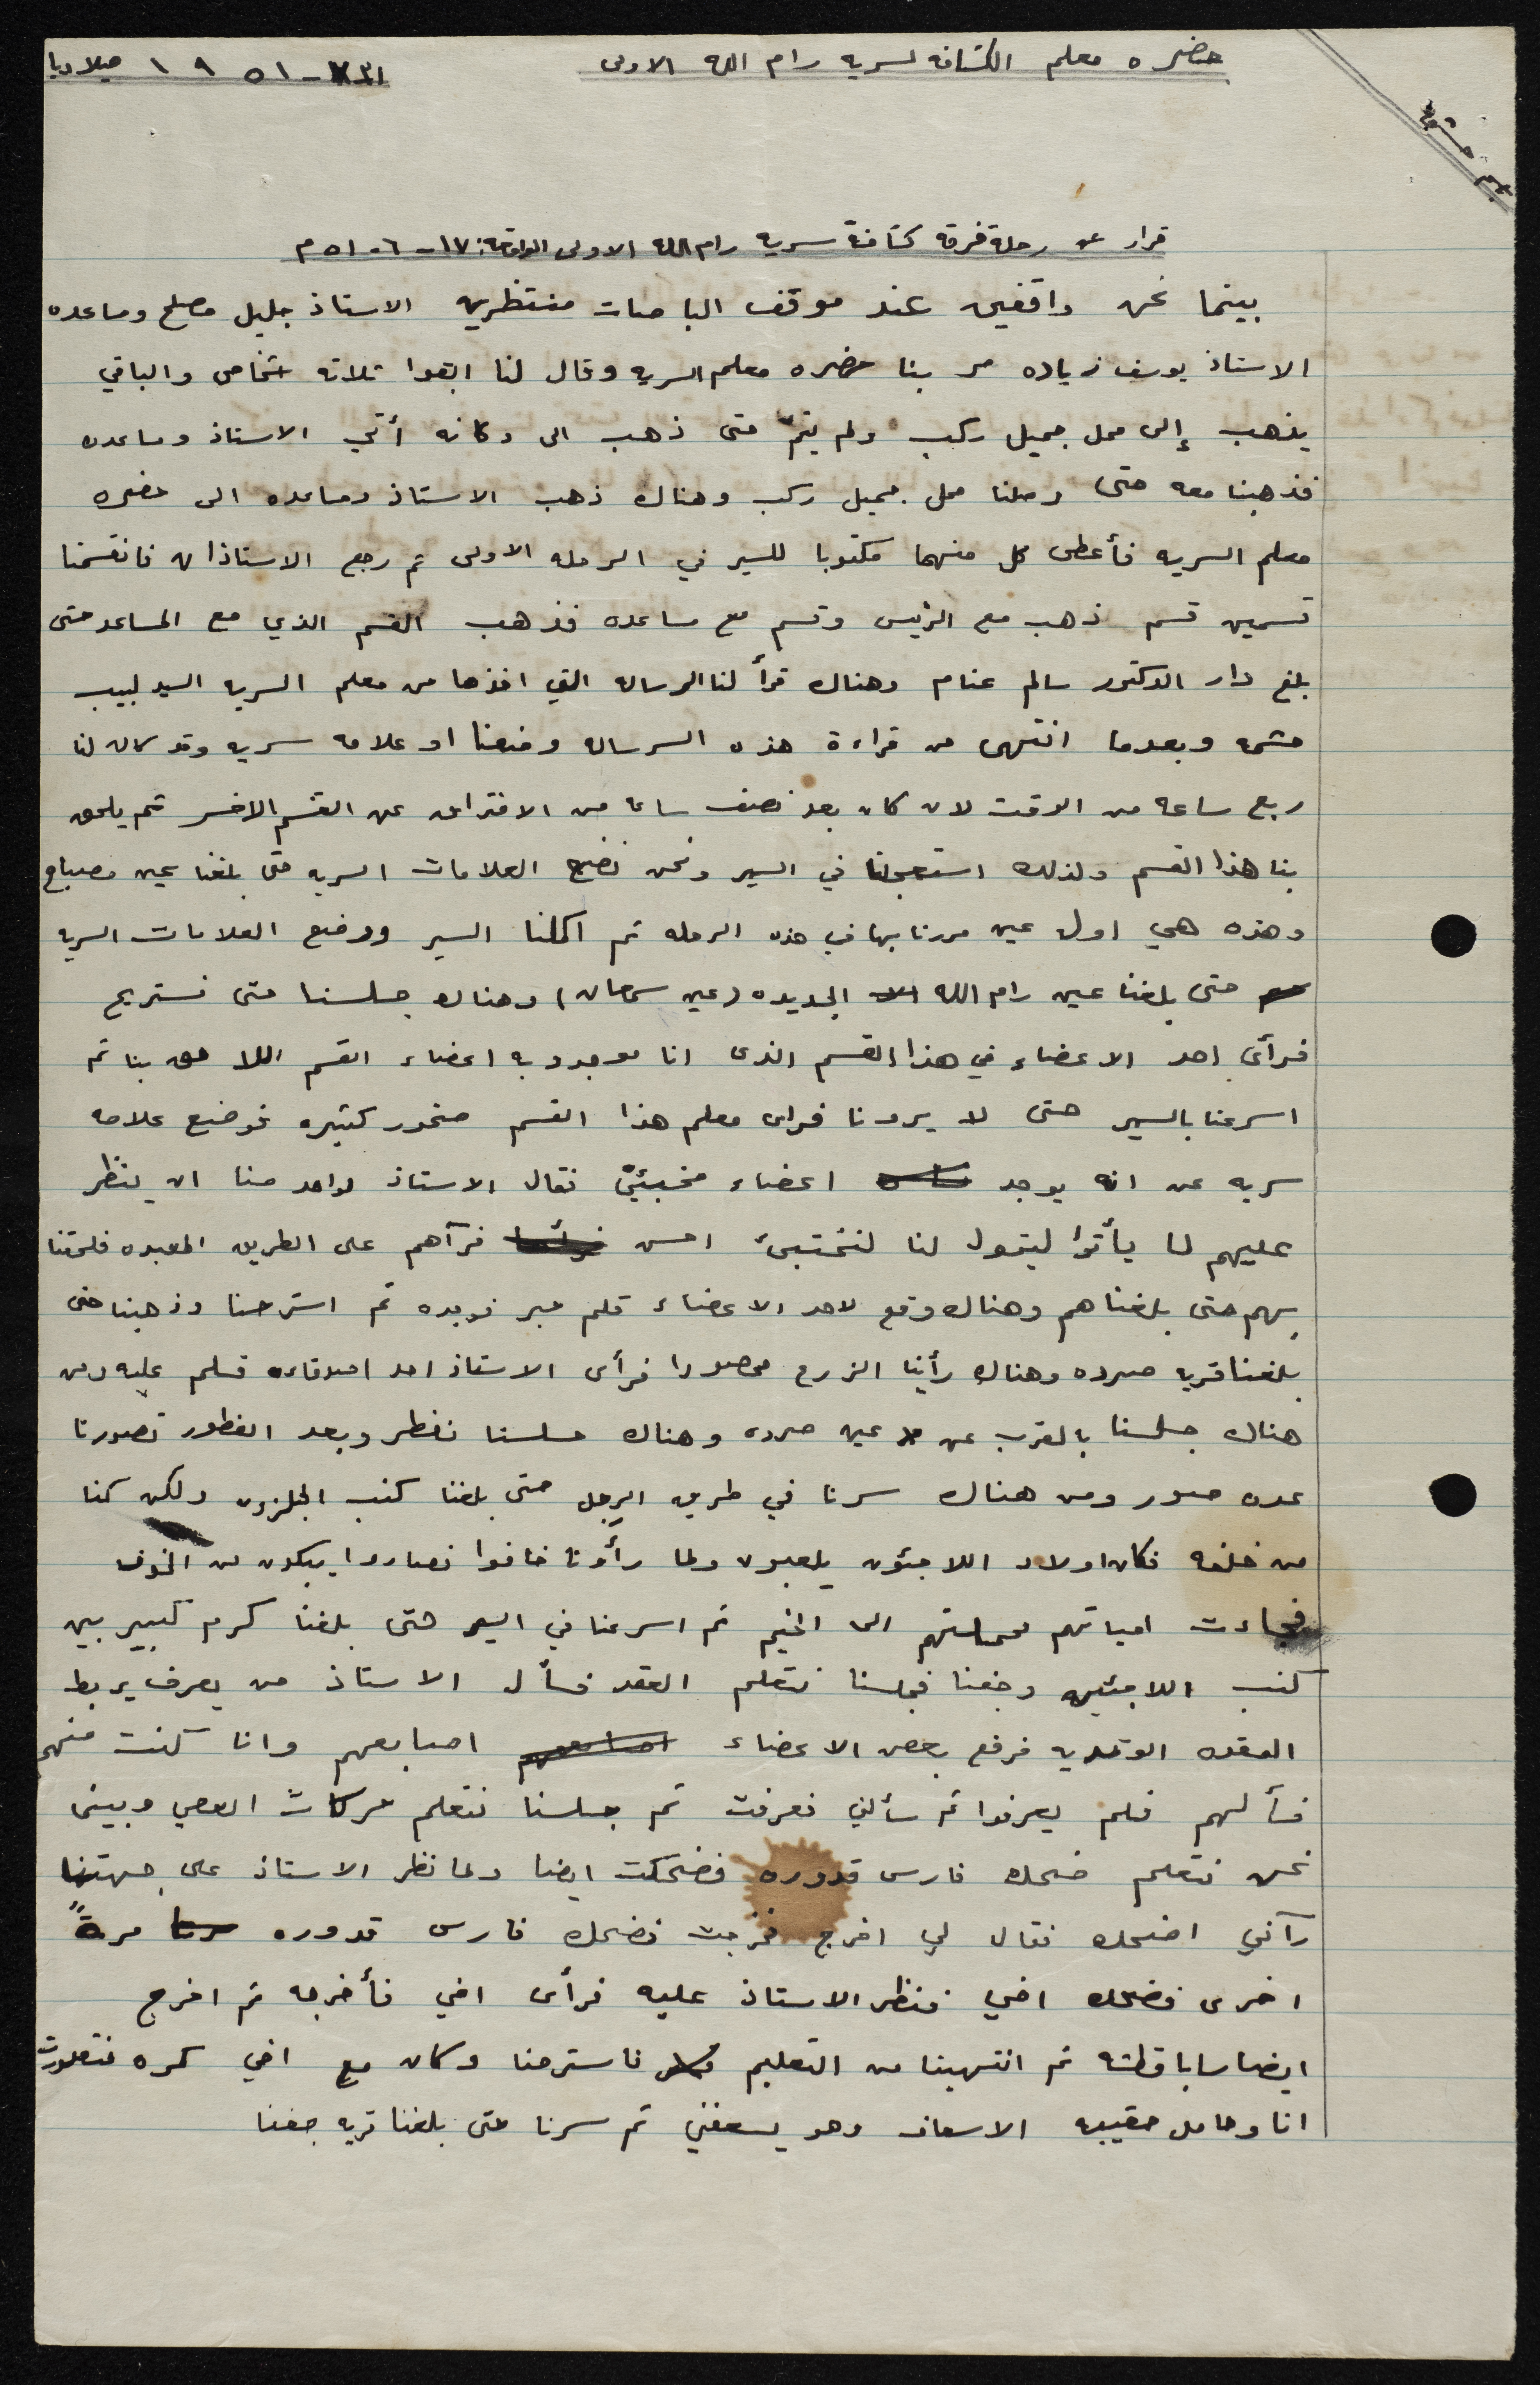 حضره معلم الكشافه لسريه رام الله الاولى
١٩٥١ ميلاديا
قرار عن رحلة فرقه كشافة سريه رام الله الاولى الواقعة: ١٧-٦-٥١م
بينما نحن واقفين عند موقف الباصات منتظرين الاستاذ جليل مصلح ومساعده
الاستاذ يوسف زياده مر بنا حضره معلم السريه وقال لنا ابقوا ثلاثه اشخاص والباقي
يذهب إلى محل جميل ركب ولم يتم حتى ذهب الى دكانه أتي الاستاذ ومساعده
فذهبنا معه حتى وصلنا محل جميل ركب وهناك ذهب الاستاذ ومساعده الى حضره
معلم السريه فأعطى كل منهما مكتوبا للسير في الرحله الاولى ثم رجع الاستاذان فانقسمنا
قسمين قسم ذهب مع الرئيس وقسم مع مساعده فذهب القسم الذي مع المساعد حتى
بلغ دار الدكتور سالم غنام وهناك قرأ لنا الرساله التي اخذها من معلم السريه السيد لبيب
حشمه وبعدما انتهى من قراءة هذه الرساله وضعنا اول علامه سريه وقد كان لنا
ربع ساعه من الوقت لان كان بعد نصف ساعه من الافتراق عن القسم الاخر ثم يلحق
بنا هذا القسم ولذلك استعجلنا في السير ونحن نضع العلامات السريه حتى بلغنا عين مصباح
وهذه هي اول عين مررنا بها في هذه الرحله ثم اكملنا السير ووضع العلامات السريه
حتى بلغنا عين رام الله الجديده (عين سمعان) وهناك جلسنا حتى نستريح
فرأى احد الاعضاء في هذا القسم الذى انا موجود به اعضاء القسم اللاحق بنا ثم
اسرعنا بالسير حتى لا يرونا فراى معلم هذا القسم صخور كثيره فوضع علامه
سريه عن انه يوجد اعضاء مخبئين فقال الاستاذ لواحد منا ان ينظر
عليهم لما يأتوا ليقول لنا لنختبئ احسن فرآهم على الطريق المعبده فلحقنا
بهم حتى بلغناهم وهناك وقع لاحد الاعضاء قلم حبر فوجده ثم استرحنا وذهبنا حتى
بلغنا قريه صرده وهناك رأينا الزرع محصودا فرأى الاستاذ احد اصدقاءه فسلم عليه ومن
هناك جلسنا بالقرب من عين صرده وهناك جلسنا نفطر وبعد الفطور تصورنا
عده صور ومن هناك سرنا في طريق الرجل حتى بلغنا كنب الجلزون ولكن كنا
من خلفه فكان اولاد اللاجئون يلعبون ولما رأونا خافوا فصاروا يبكون من الخوف
فجاءت امياتهم فحملتهم الى المخيم ثم اسرعنا في السير حتى بلغنا كرم كبير بين
كنب اللاجئين وجفنا فجلسنا نتعلم العقد فسأل الاستاذ من يعرف يربط
العقده الوتديه فرفع بعض الاعضاء اصابعهم وانا كنت منهم
فسألهم فلم يعرفوا ثم سألني فعرفت ثم جلسنا نتعلم حركات العصي وبينى
نحن نتعلم ضحك فارس قدوره فضحكت ايضا ولما نظر الاستاذ على جهتنا
رآني اضحك فقال لي اخرج فخرجت فضحك فارس قدوره مرةً
اخرى فضحك اخي فنظر الاستاذ عليه فرأى اخي فأخرجه ثم اخرج
ايضا سابا قطشه ثم انتهينا من التعليم فاسترحنا وكان مع اخي كمره فتصورت
انا وحامل حقيبه الاسعاف وهو يسعفني ثم سرنا حتى بلغنا قريه جفنا